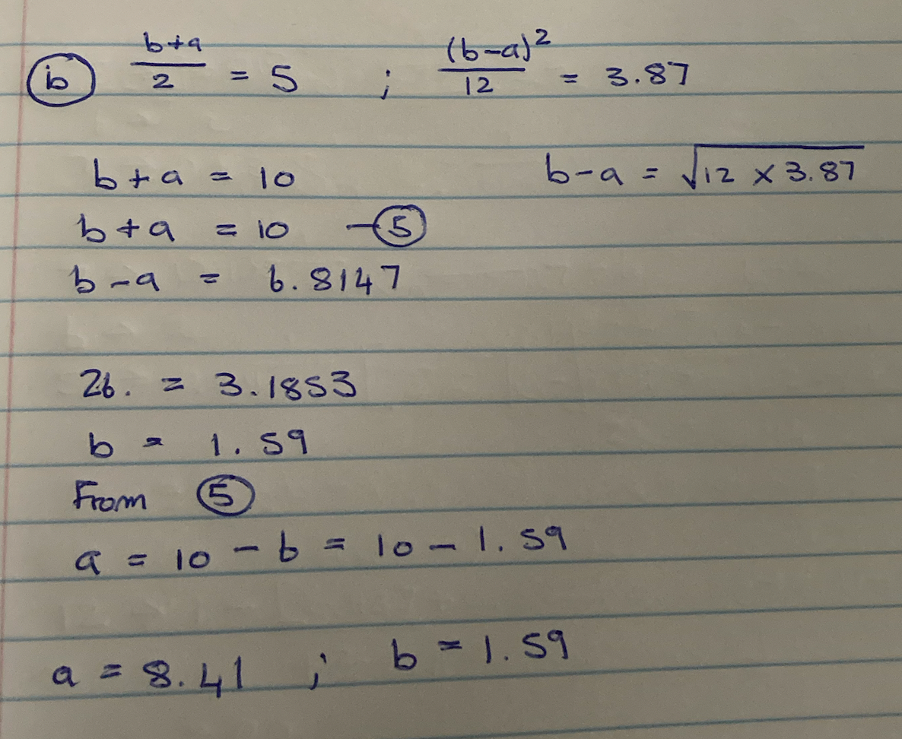 (b) (b+a)/2 = 5 ; (b-a)²/12 = 3.87
b+a = 10 b-a = √(12 × 3.87)
b+a = 10 —⑤
b-a = 6.8147
2b. = 3.1853
b = 1.59
From ⑤
a = 10 - b = 10 - 1.59
a = 8.41 ; b = 1.59